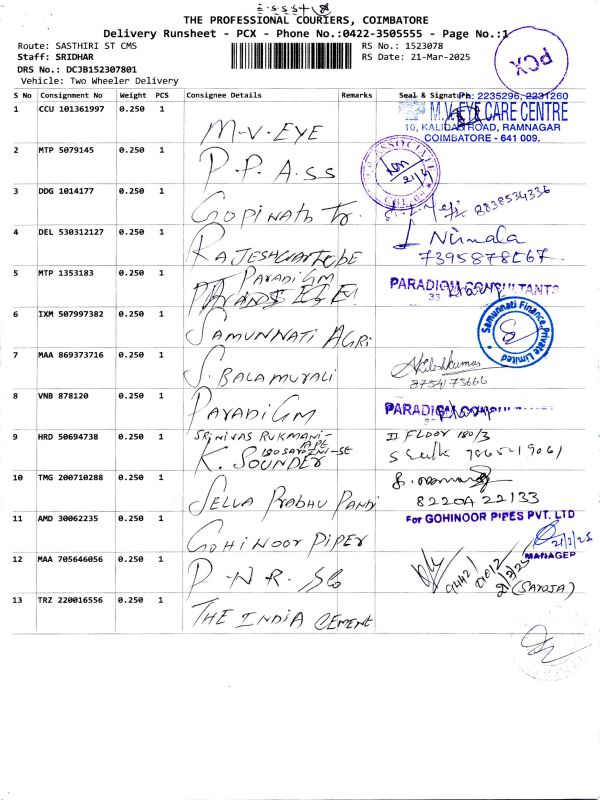 THE PROFESSIONAL COURIERS, COIMBATORE
Delivery Runsheet - PCX - Phone No.:0422-3505555 - Page No.:1
Route: SASTHIRI ST CMS
RS No.: 1523078
Staff: SRIDHAR
RS Date: 21-Mar-2025
DRS No.: DCJB152307801
Vehicle: Two Wheeler Delivery
PCX
S No Consignment No Weight PCS Consignee Details Remarks Seal & Signature
Ph: 2235296, 2231260
1 CCU 101361997 0.250 1 M-V-EYE
M.V. EYE CARE CENTRE
10, KALIDAS ROAD, RAMNAGAR
COIMBATORE - 641 009.
2 MTP 5079145 0.250 1 P.P.A.SS
21/3
3 DDG 1014177 0.250 1 GOPINATH Tr.
8838534336
4 DEL 530312127 0.250 1
Nirmala
5 MTP 1353183 0.250 1 PARADIGM
PARADIGM CONSULTANTS
6 IXM 507997382 0.250 1 SAMUNNATI AGRI
Samunnati Finance Private Limited
7 MAA 869373716 0.250 1 S. BALAMURALI
Akileshkumar
8754173666
8 VNB 878120 0.250 1 PARADIGM
PARADIGM
9 HRD 50694738 0.250 1 SRINIVAS RUKMANI-
APT
K. SOUNDER
II FLOOR 180/3
10 TMG 200710288 0.250 1 SELLA PRABHU PANDI
8220A 22133
11 AMD 30062235 0.250 1 GOHINOOR PIPER
For GOHINOOR PIPES PVT. LTD
21/3/25
MANAGER
12 MAA 705646056 0.250 1 P.N.R.
94421
21/3/25
(SAROJA)
13 TRZ 220016556 0.250 1 THE INDIA CEMENT